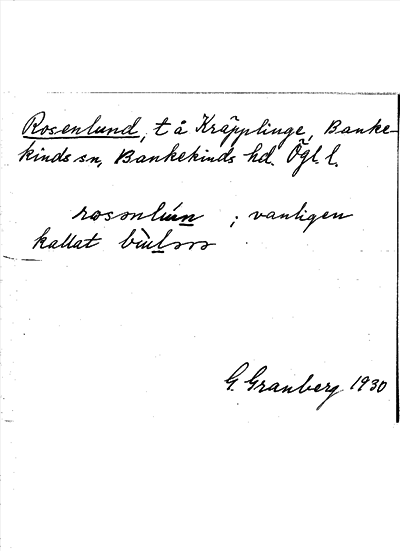 Rosenlund, t å Kräpplinge, Banke-
kinds sn, Bankekinds hd. Ögl l.
; vanligen
kallat
G. Granberg 1930